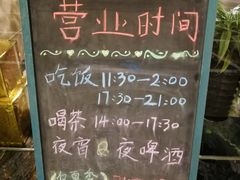 营业时间
吃饭 11:30-2:00
17:30-21:00
喝茶 14:00-17:30
夜宵 夜啤酒